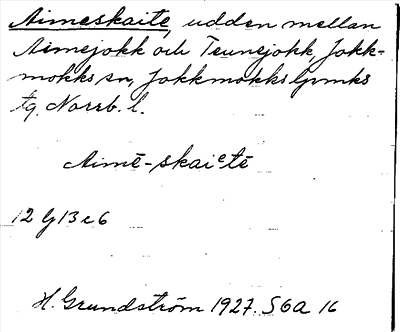 Aimeskaite, udden mellan
Aimejokk och Teunejokk, Jokk-
mokks sn, Jokkmokks ljvmks
tg. Norrb. l.
Aimē-skaiᵉtē
12 G 13 c 6
H. Grundström 1927. S6a 16